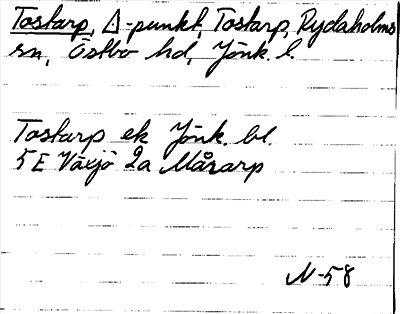 Tostarp, Δ-punkt, Tostarp, Rydaholms
sn, Östbo hd, Jönk. l.
Tostarp ek Jönk. bl.
5E Växjö 2a Mårarp
N-58